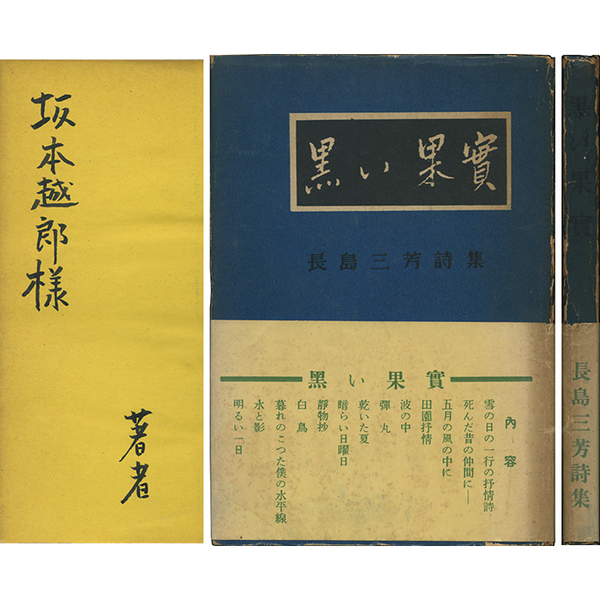 坂本越郎様
著者
黒い果實
長島三芳詩集
黑い果實
內容
雪の日の一行の抒情詩
死んだ昔の仲間に——
五月の風の中に
田園抒情
波の中
彈丸
乾いた夏
暗らい日曜日
靜物抄
白鳥
暮れのこつた僕の水平線
水と影
明るい一日
黑い果實
長島三芳詩集